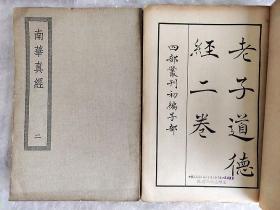 南華真經
二
老子道德
經二卷
四部叢刊初編子部